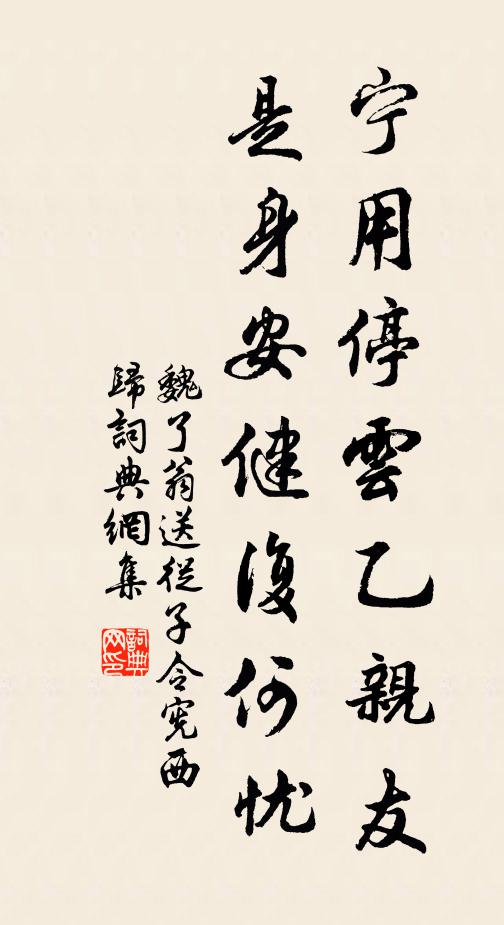 宁用停雲乙親友
是身安健復何忧
魏了翁送從子令憲西
歸詞典網集
詞典网印